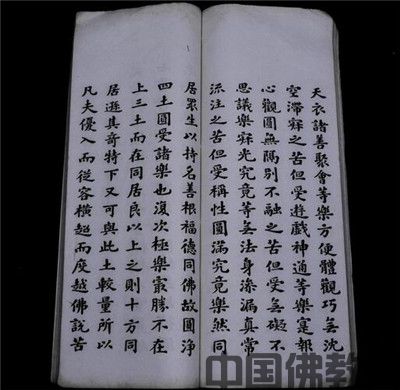 天衣諸善聚會等樂方便體觀巧無沈
空滯寂之苦但受遊戲神通等樂寔報
心觀圓無隔別不融之苦但受無礙不
思議樂寂光究竟等無法身滲漏真常
流注之苦但受稱性圓滿究竟樂然同
居眾生以持名善根福德同佛故圓淨
四土圓受諸樂也復次極樂最勝不在
上三土而在同居良以上之則十方同
居遜其奇特下又可與此土較量所以
凡夫優入而從容橫超而度越佛說苦
中国佛教